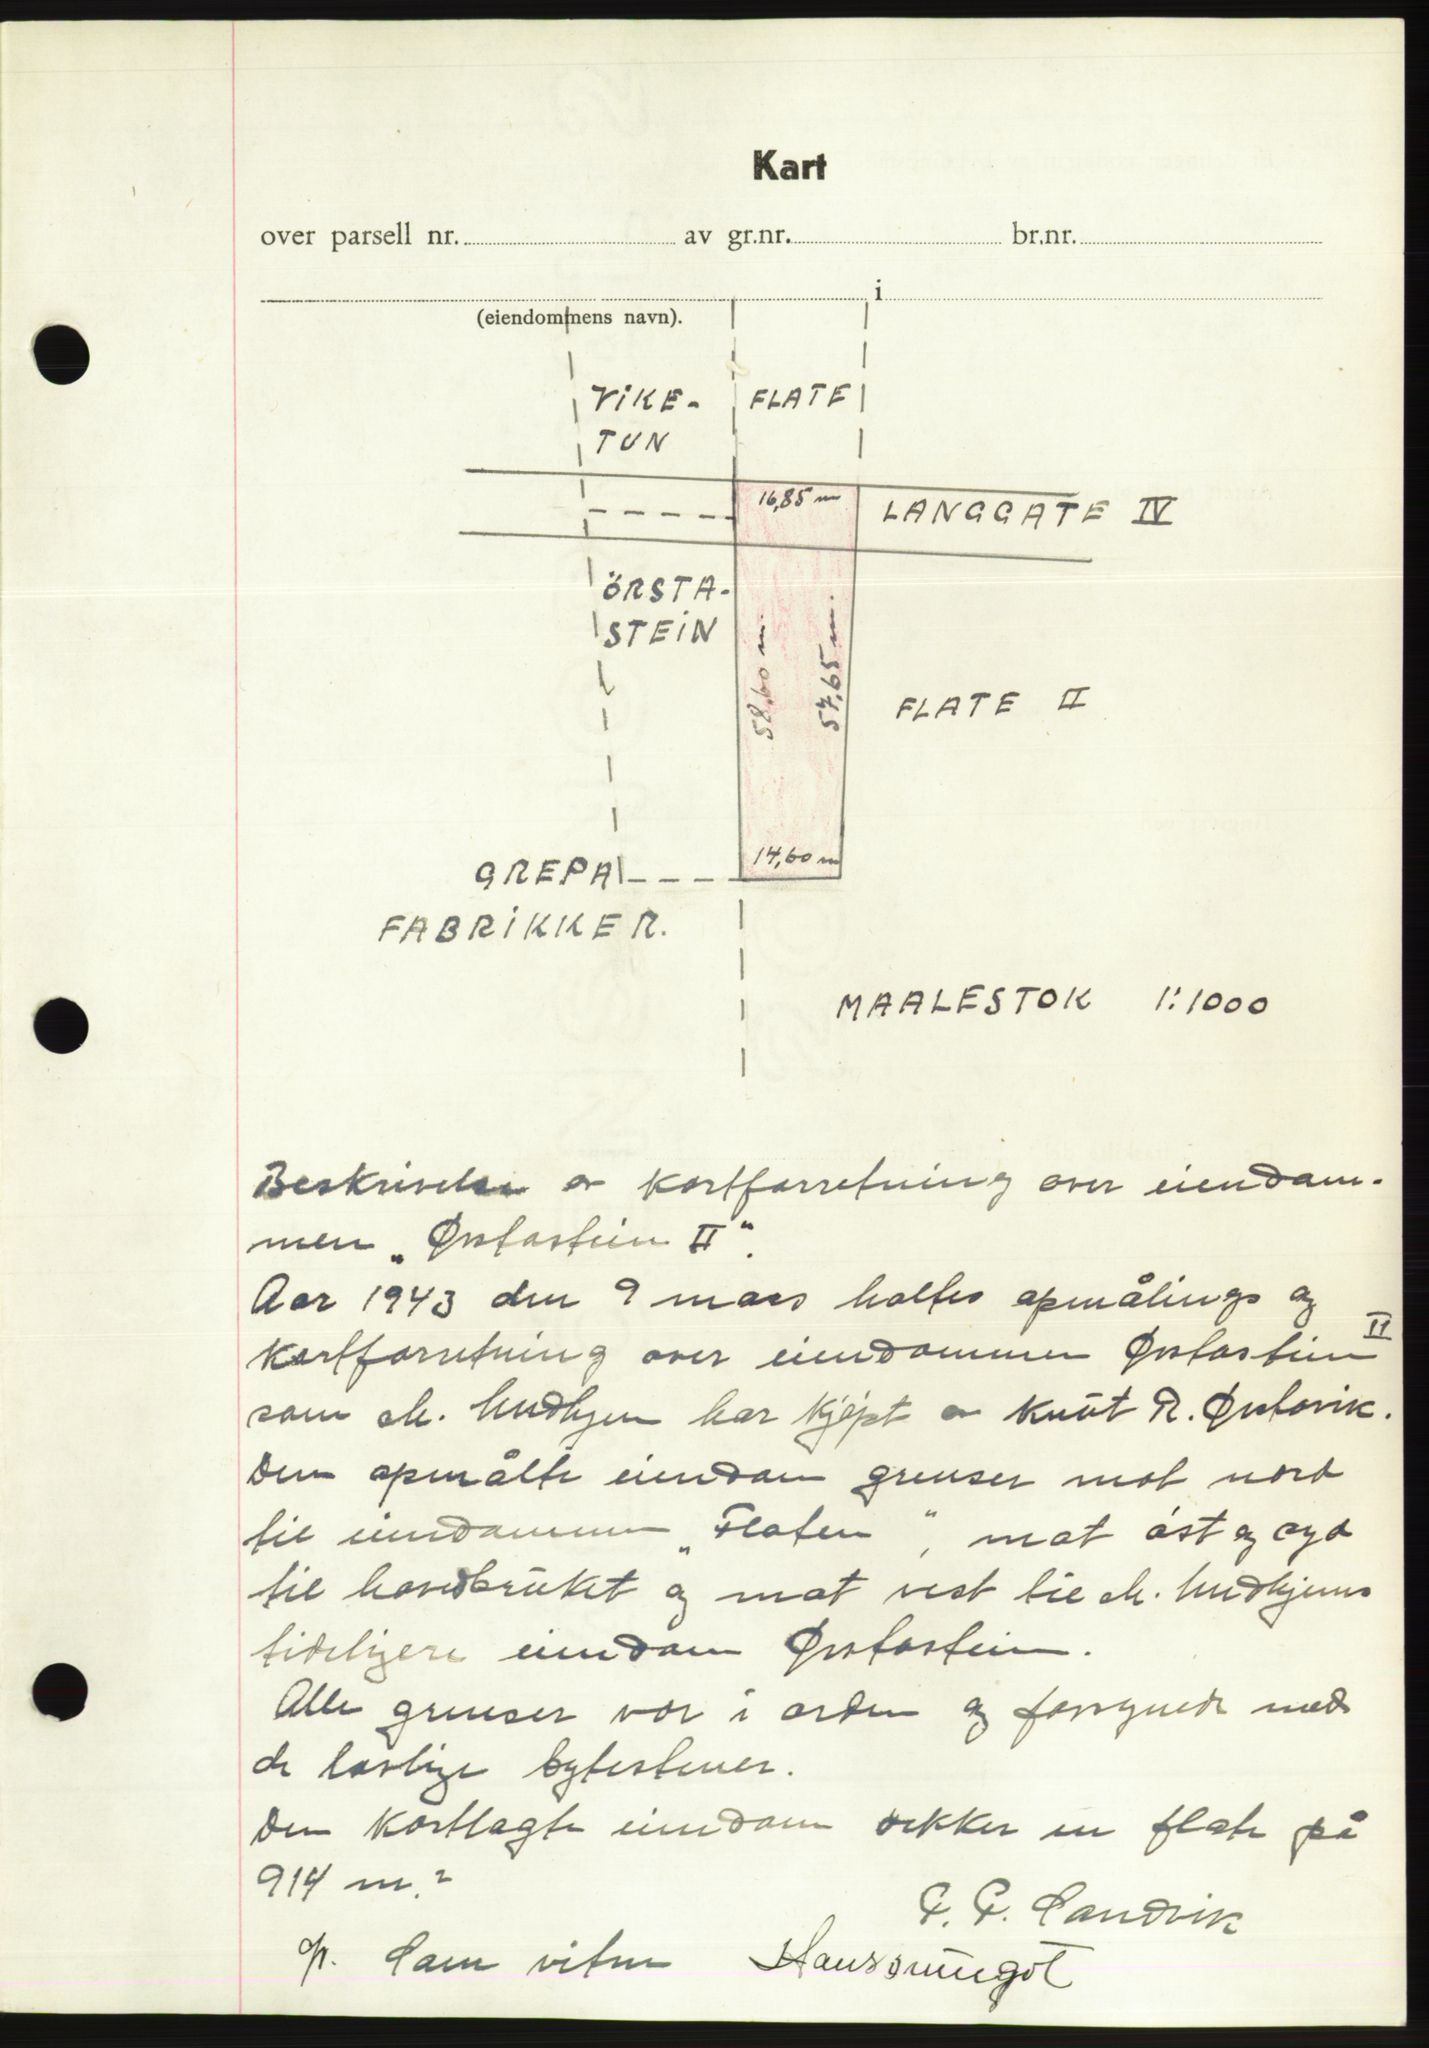 Kart
over parsell nr. av gr.nr. br.nr.
i
(eiendommens navn).
VIKE- FLATE
TUN
16,85 m
LANGGATE IV
ÖRSTA-
STEIN
58,60 m.
57,65 m.
FLATE II
14,60 m
GREPA
FABRIKKER.
MAALESTOK 1:1000
Beskrivelse av kartforretning over eiendom-
men „Ørstastein II“.
Aar 1943 den 9 mars holtes opmålings og
kartforretning over eiendommen Ørstastein II
som M. Undhjem har kjøpt av Knut R. Ørstavik.
Den opmålte eiendom grenser mot nord
til eiendommen „Flaten“, mot øst og syd
til hovedbruket og mot vest til M. Undhjems
tideligere eiendom Ørstastein.
Alle grenser var i orden og forsynede med
de lovlige bytestener.
Den kartlagte eiendom dekker en flate på
914 m.²
Sandvik
Som vitne